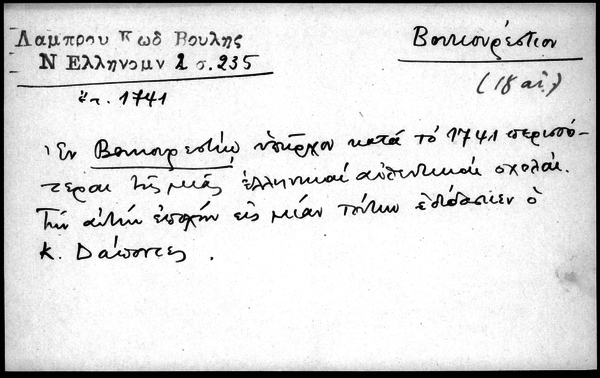 Λάμπρου Κωδ Βουλής
Ν Ελληνομν 2 σ. 235
ἔτ. 1741
Βουκουρέστιον
(18 αἰ.)
Ἐν Βουκουρεστίῳ ὑπῆρχον κατὰ τὸ 1741 περισσό-
τεραι τῆς μιᾶς ἑλληνικαὶ αὐθεντικαὶ σχολαί.
Τὴν αὐτὴν ἐποχὴν εἰς μίαν τούτων ἐδίδασκεν ὁ
Κ. Δαπόντες.